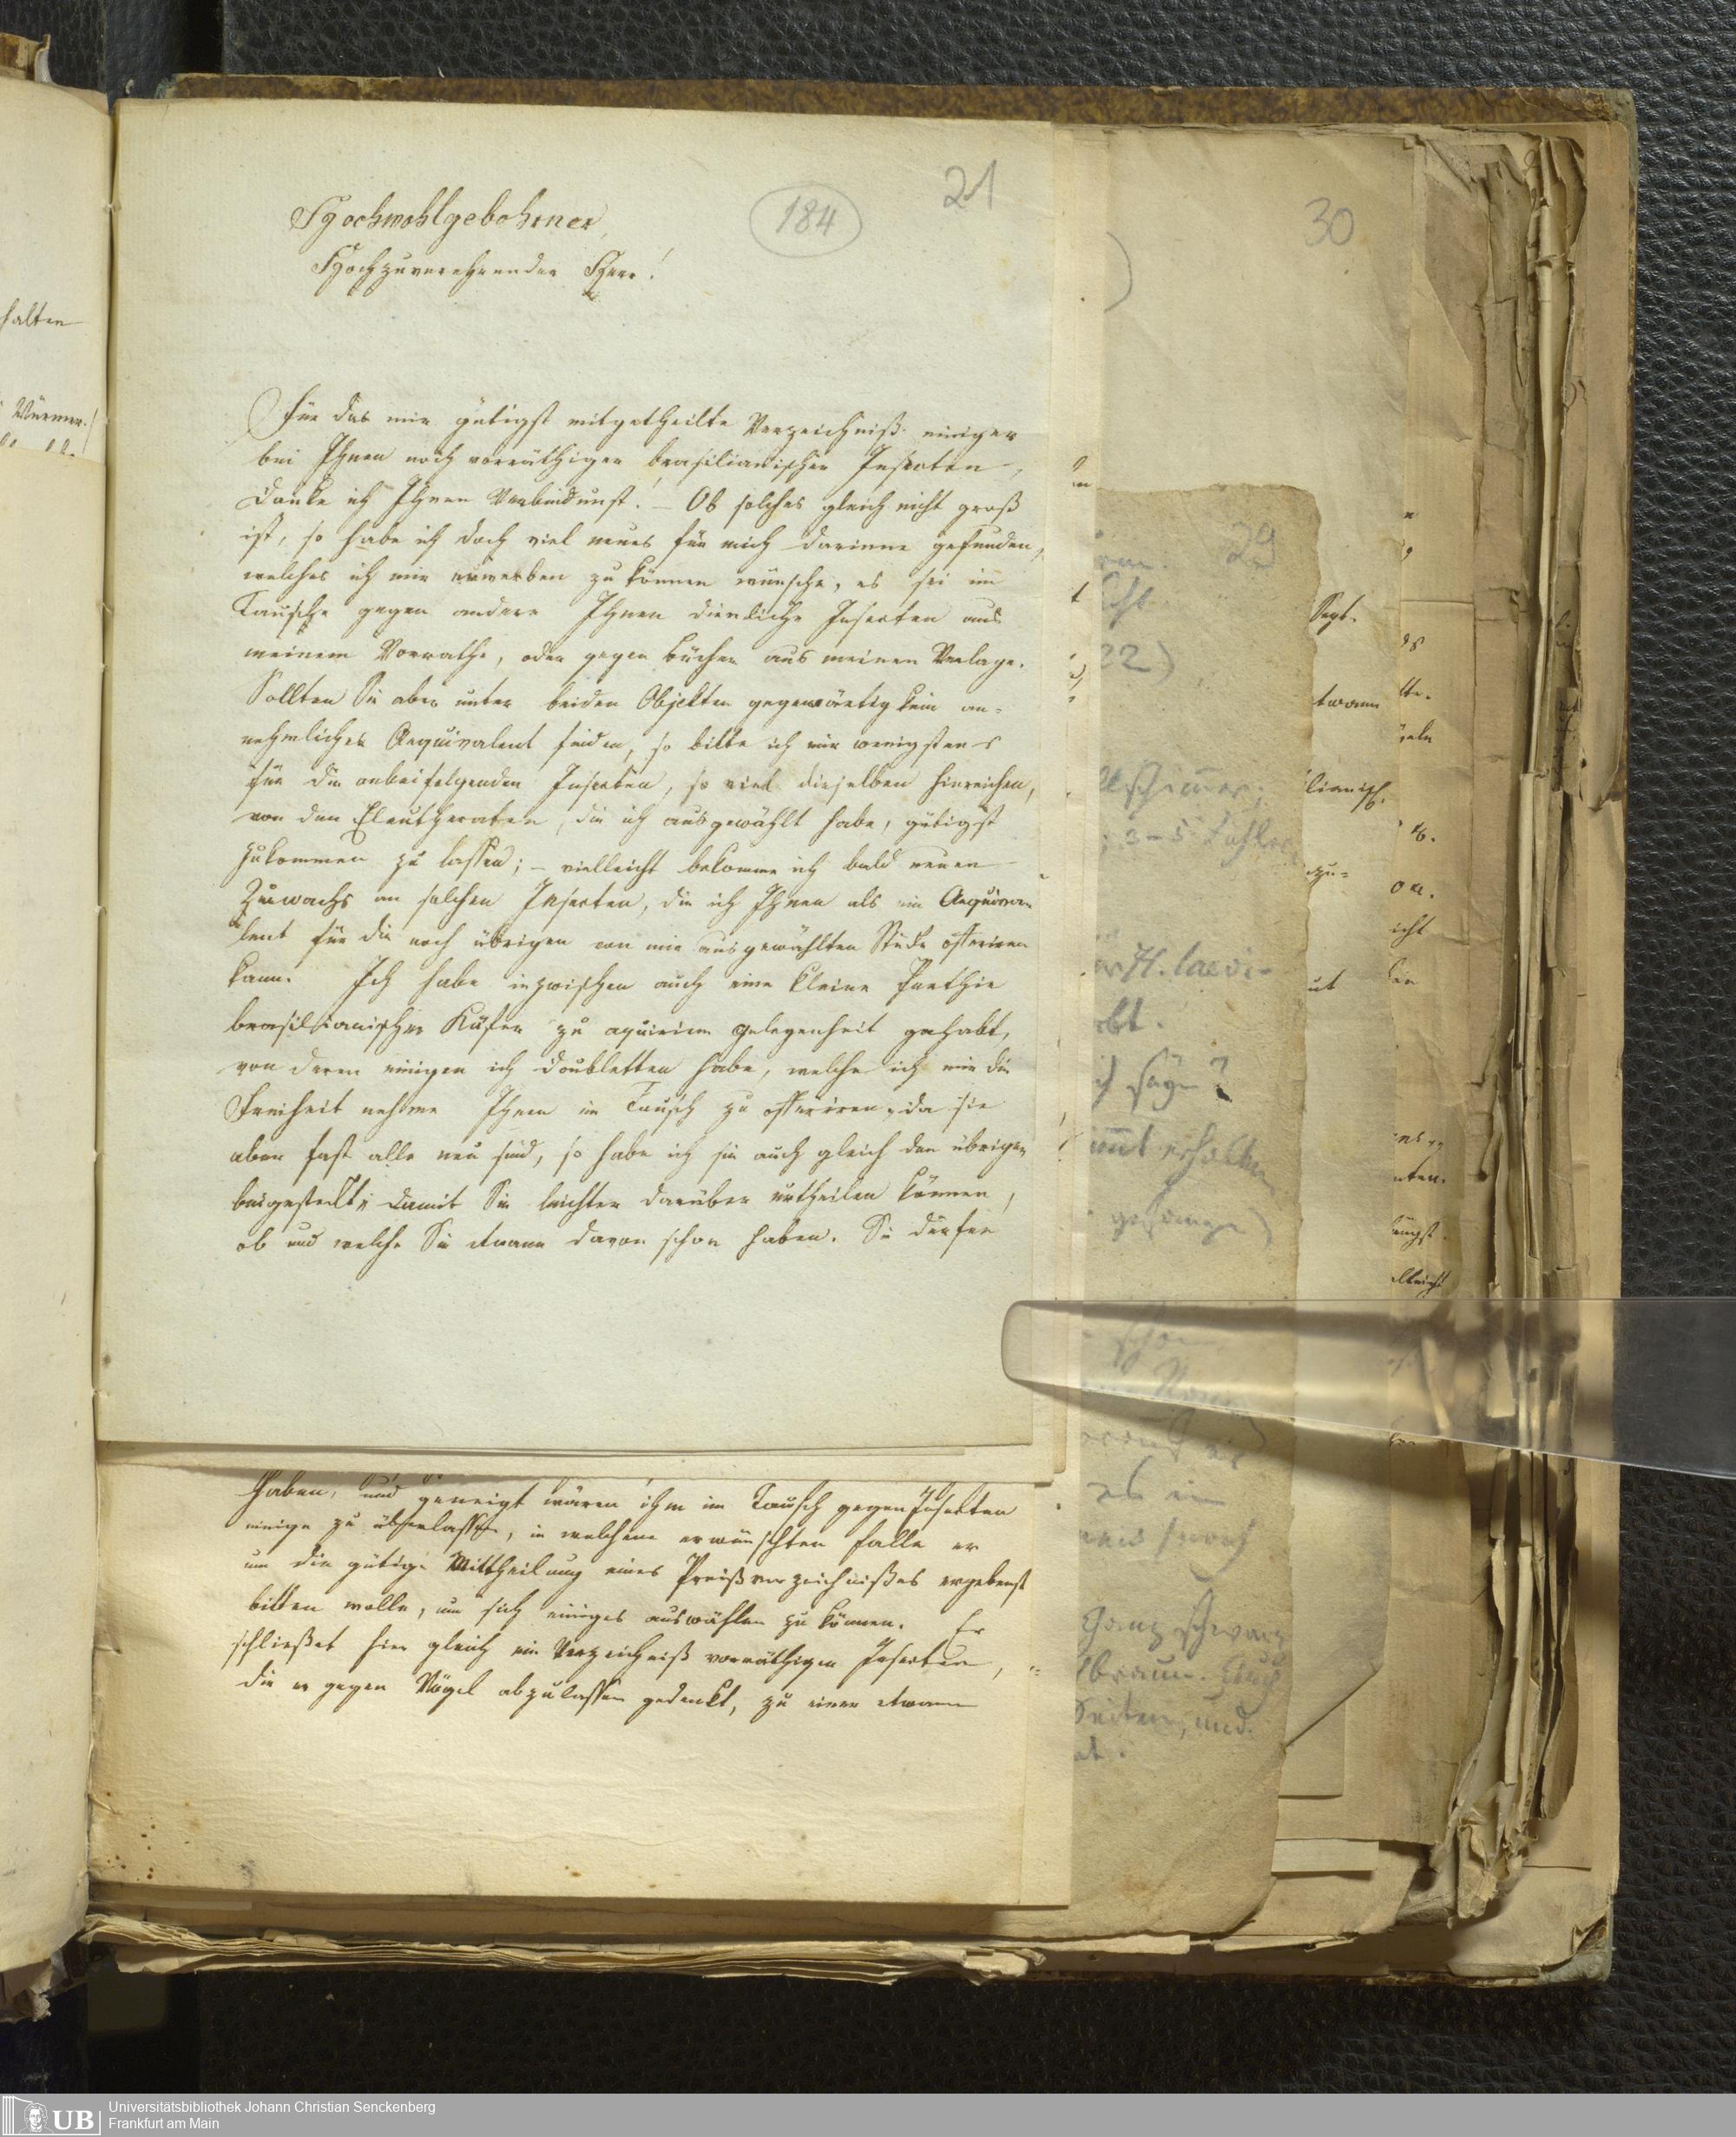 21
184
Hochwohlgebohrner,
Hochzuverehrender Herr!
Für das mir gütigst mitgetheilte Verzeichniß einiger
bei Ihnen noch vorräthigen brasilianischen Insecten,
danke ich Ihnen Verbindlichst! – Ob solches gleich nicht groß
ist, so habe ich doch viel neues für mich darinne gefunden,
welches ich mir erwerben zu können wünsche, es sei im
Tausche gegen andere Ihnen dienliche Insecten aus
meinem Vorrathe, oder gegen Bücher aus meinem Verlage.
Sollten Sie aber unter beiden Objekten gegenwärtig kein an-
nehmliches Aequivalent finden, so bitte ich mir wenigstens
für die anbeifolgenden Insecten, so viel dieselben hinreichen,
von den Eleutheraten, die ich ausgewählt habe, gütigst
zukommen zu lassen; – vielleicht bekomme ich bald neuen
Zuwachs an solchen Insecten, die ich Ihnen als ein Aequiva-
lent für die noch übrigen von mir ausgewählten Stücke offeriren
kann. Ich habe inzwischen auch eine kleine Parthie
brasilianischer Käfer zu aquirirn gelegenheit gehabt,
von deren einigen ich doubletten habe, welche ich mir die
Freiheit nehme Ihnen im Tausch zu offeriren, da sie
aber fast alle neu sind, so habe ich sie auch gleich den übrigen
beigesteckt, damit Sie leichter darüber urtheilen können,
ob und welche Sie etwann davon schon haben. Sie dürfen
haben, und geneigt wären ihm im Tausch gegen Insekten
einige zu überlassen, in welchem erwünschten Falle er
um die gütige Mittheilung eines Preißverzeichnißes ergebenst
bitten wolle, um sich einiges auswählen zu können. Er
schließet hier gleich ein Verzeichniß vorräthiger Insecten,
die er gegen Vögel abzulassen gedenkt, zu einer etwann
halten
Würmer.
30
29
22)
H. laevi-
ich sage?
erhalten
schon
ganz schwarz
Seiten, und
Sept.
etwann
Universitätsbibliothek Johann Christian Senckenberg
Frankfurt am Main
UB